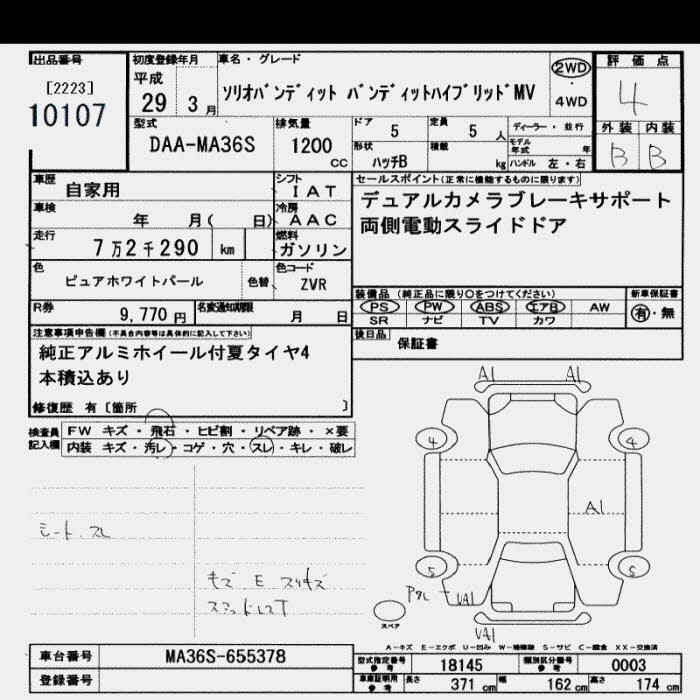 出品番号 初度登録年月 車名・グレード 評価点
[2223] 平成 2WD 4
10107 29 3月 ソリオバンディット バンディットハイブリッドMV 4WD
型式 排気量 ドア 定員 ディーラー・並行 外装 内装
DAA-MA36S 1200 cc 5 5人 モデル年式 年 B B
形状 積載
ハッチB kg ハンドル 左・右
車歴 自家用 シフト IAT セールスポイント(正常に機能するものに限ります)
車検 年 月( 日) 冷房 AAC デュアルカメラブレーキサポート
走行 7万2千290 km 燃料 ガソリン 両側電動スライドドア
色 ピュアホワイトパール 色替 色コード ZVR
装備品 (純正品に限り○をつけてください) 新車保証書
R券 9,770円 名変通知期限 月 日 PS PW ABS エアB AW 有・無
SR ナビ TV カワ
注意事項申告欄(不具合内容等は具体的に記入して下さい) 後日品 保証書
純正アルミホイール付夏タイヤ4
本積込あり
修復歴 有 [箇所 ]
検査員記入欄 FW キズ・飛石・ヒビ割・リペア跡・×要
内装 キズ・汚レ・コゲ・穴・スレ・キレ・破レ
A1 A1
4 4
A1
シート スレ
5 5
キズ E スリキズ
UA1
UA1
スペア
A-キズ E-エクボ U-凹み W-補修跡 S-サビ C-腐食 XX-交換済
車台番号 MA36S-655378 型式指定番号 参考 18145 類別区分番号 参考 0003
登録番号 車庫証明用 参考 長さ 371 cm 幅 162 cm 高さ 174 cm